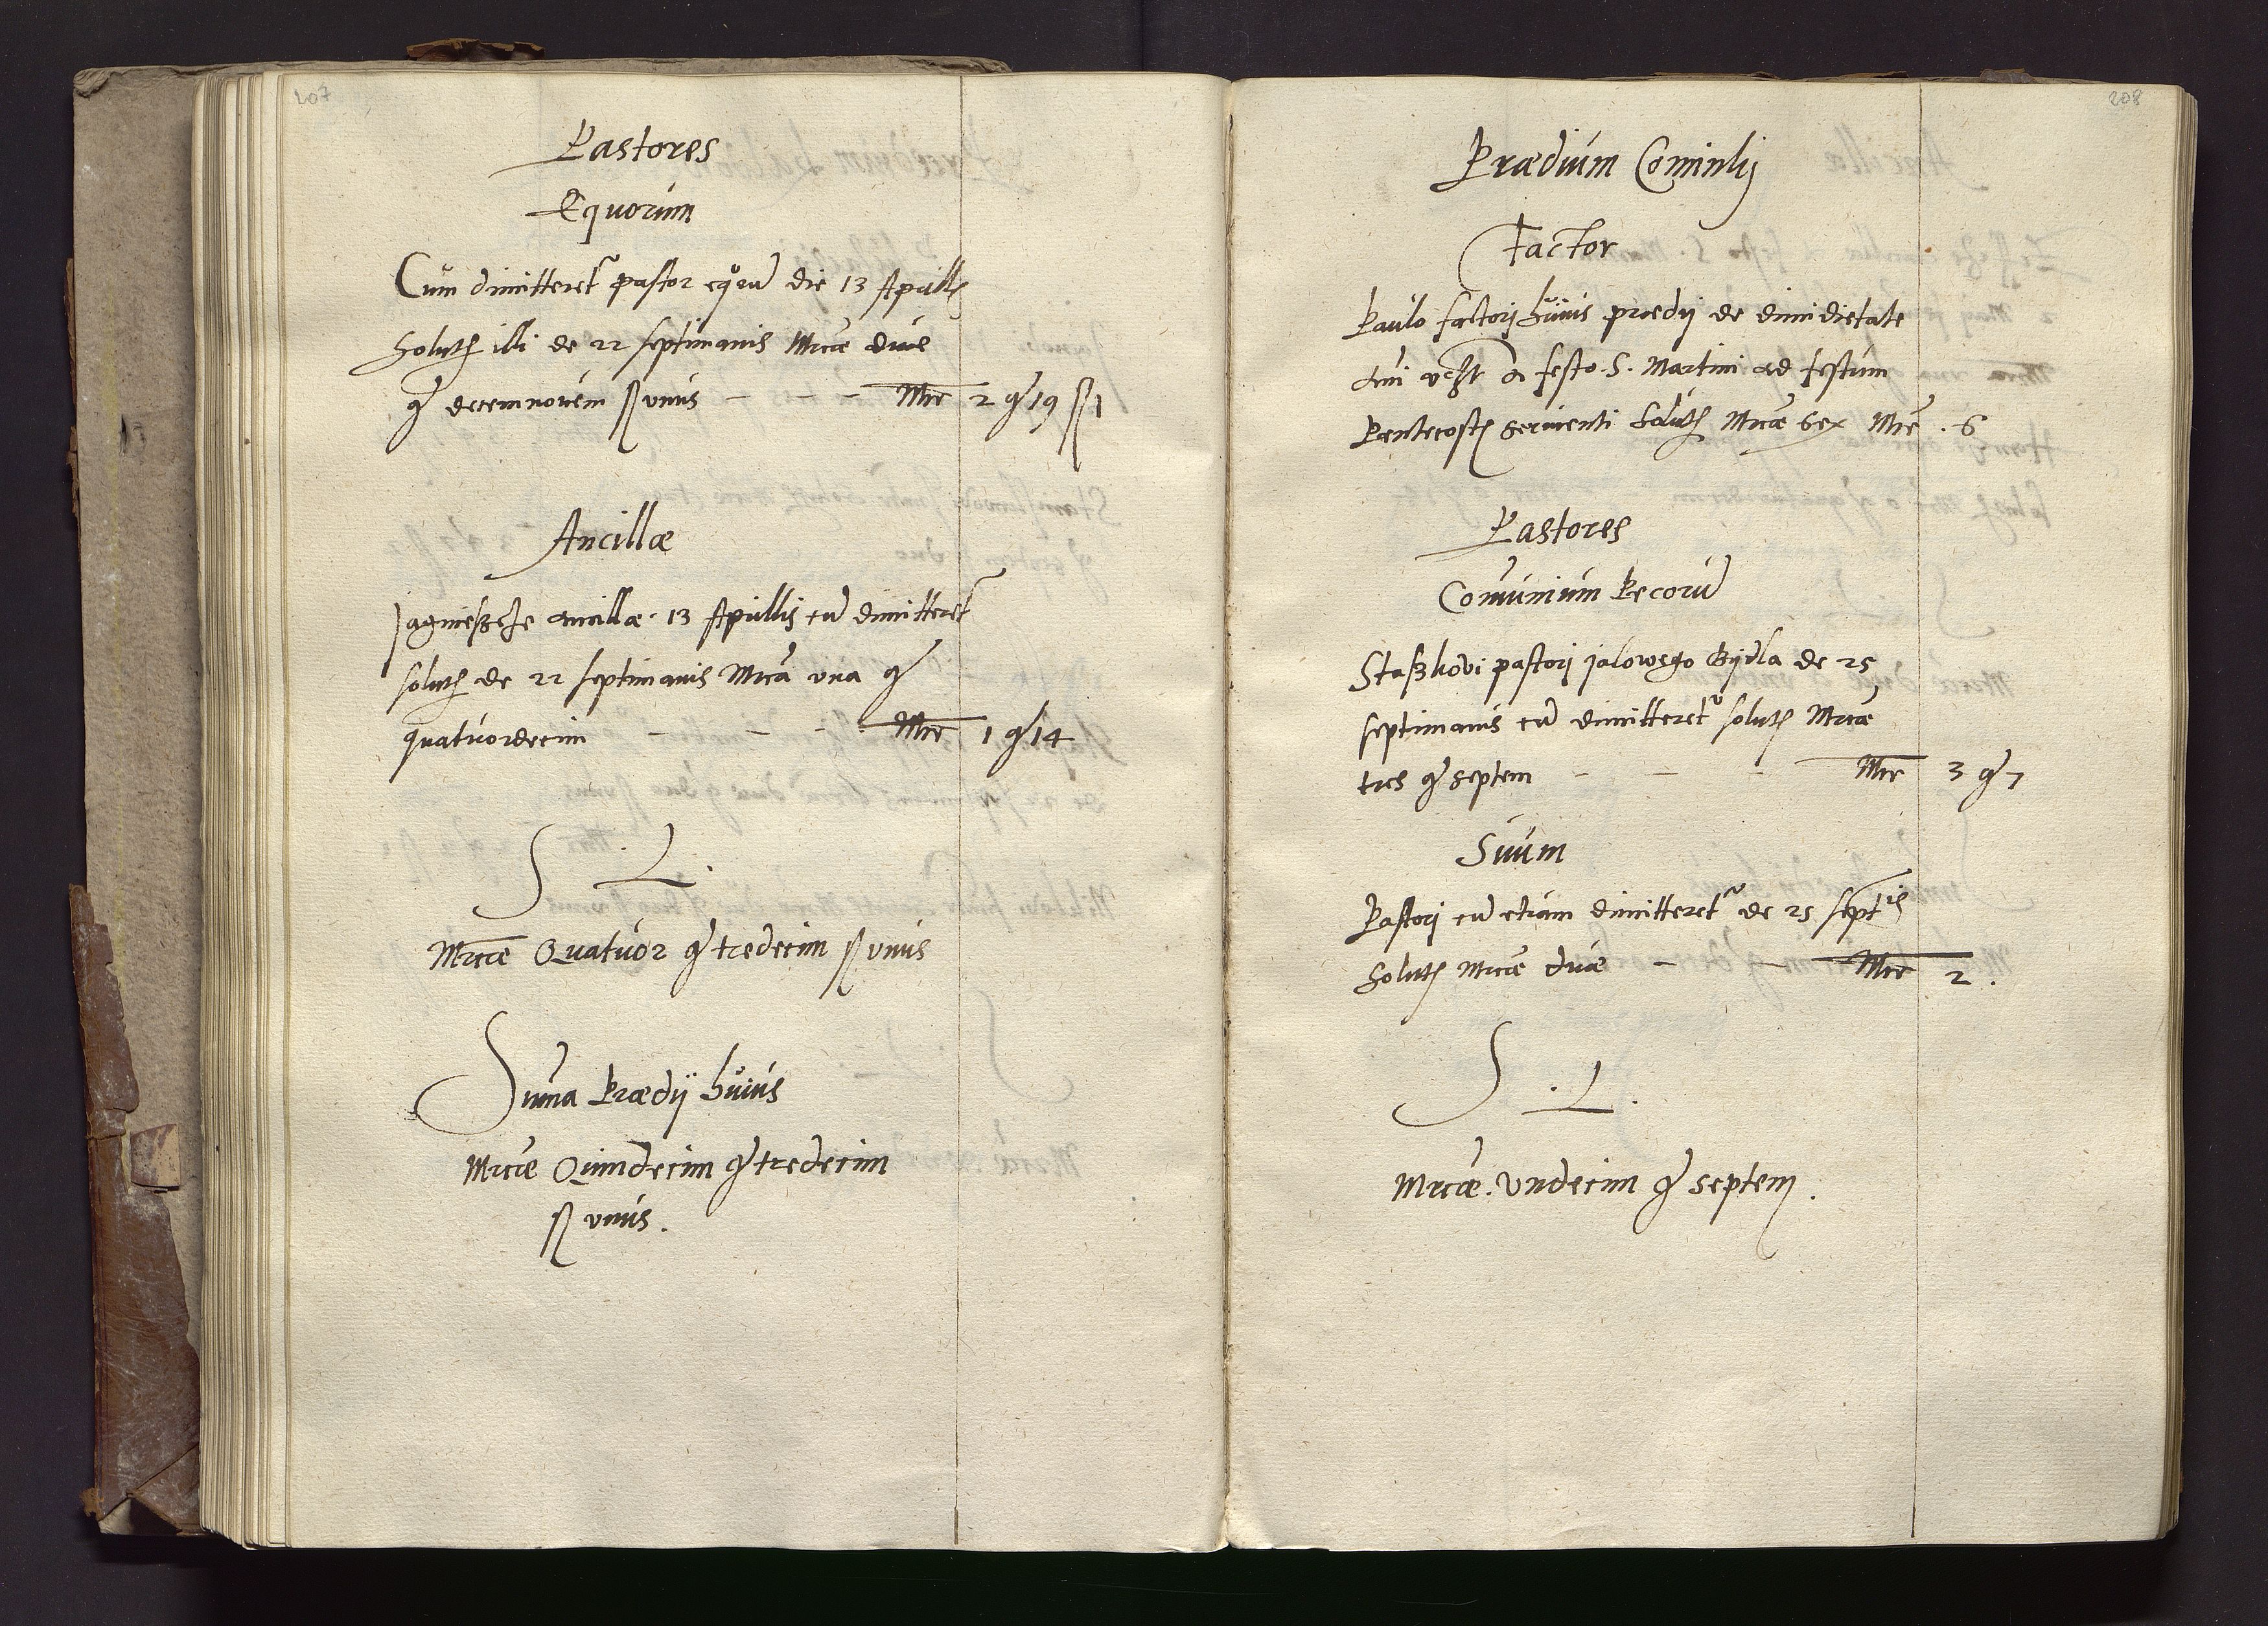 207
Pastores
Equorum
Cum dimitteretr pastor equorū die 13 Aprilis
Solutū illi de 22 septimanis Mrcæ duæ
gr decemnouem ß unus - - - Mrc 2 gr 19 ß 1
Ancillæ
Jagnießche ancillæ 13 Aprillis cū dimitteretr
solutū de 22 septimanis Mrcā vna gr
quatuordecim - - - Mrc 1 gr 14
S. L.
Mrcæ Quatuor gr tredecim ß vnus
Suma Prædÿ huius
Mrcæ Quindecim gr tredecim
ß vnus.
208
Prædium
Factor
Paulo factorj huius prædij de dimidietate
a festo S. Martini ad festum
Pentecostes seruienti Solutū Mrcæ sex Mrc. 6
Pastores
Comunium Pecorū
Staßkovi pastorj jalowego Bydla de 25
septimanis cū dimitteretr solutū Mrcæ
tres gr septem - - - Mrc 3 gr 7
Suum
Pastorj cū etiam dimitteretr de 25 septis
Solutū Mrcæ duæ - - Mrc 2.
S. L.
Mrcæ. Vndecim gr septem.